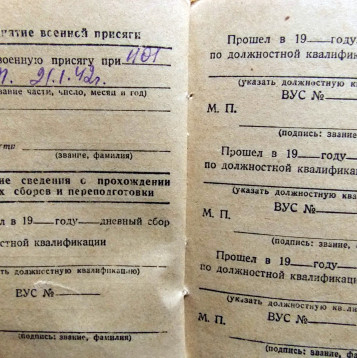 нятие военной присяги
военную присягу при 401
п. 21.1.42г.
вание части, число, месяц и год)
(звание, фамилия)
ие сведения о прохождении
х сборов и переподготовки
л в 19 году дневный сбор
остной квалификации
ть должностную квалификацию)
ВУС №
(подпись: звание, фамилия)
Прошел в 19 году
по должностной квалифик
(указать должностную ква
ВУС №
М. П.
(подпись: звание
Прошел в 19 году
по должностной квалифи
(указать должностную квал
ВУС №
М. П.
(подпись: звание, ф
Прошел в 19 году
по должностной квалифик
(указать должностную квали
ВУС №
М. П.
(подпись: звание, фа